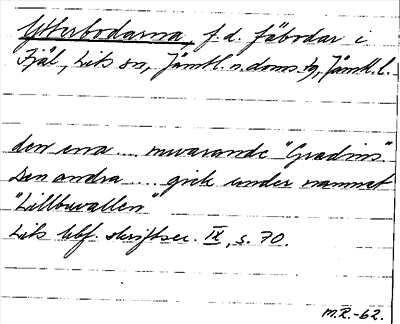 Ytterbodarna, f.d. fäbodar i
Fjäl, Lits sn, Jämtl. n. doms. tg, Jämtl. l.
den ena .... nuvarande "Gradins"
Den andra .... gick under namnet
"Lillbuvallen"
Lits hbf. skriftser. IX, s. 70.
M.R.-62.